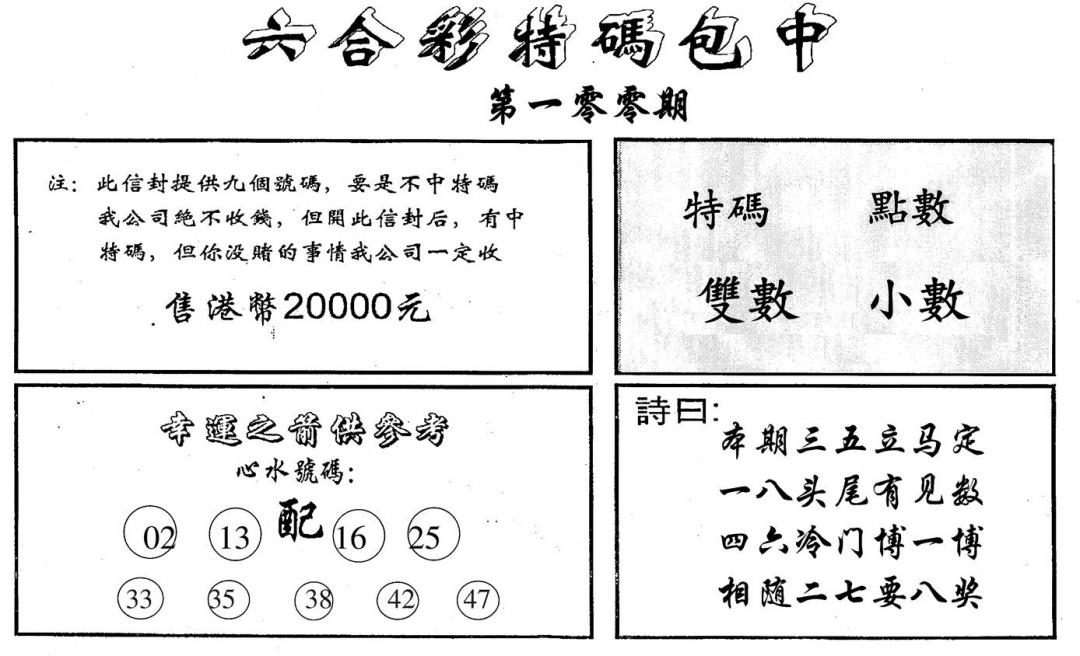 六合彩特碼包中
第一零零期
注：此信封提供九個號碼，要是不中特碼
我公司絕不收錢，但開此信封后，有中
特碼，但你没賭的事情我公司一定收
售港幣20000元
特碼 點數
雙數 小數
幸運之箭供參考
心水號碼：
配
02 13 16 25
33 35 38 42 47
詩曰：
本期三五立马定
一八头尾有见数
四六冷门博一博
相随二七要八奖